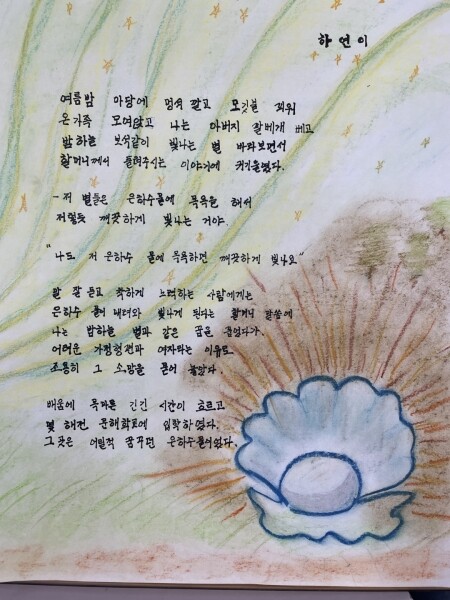 하연이
여름밤 마당에 멍석 깔고 모깃불 피워
온가족 모여앉고 나는 아버지 팔베개 베고
밤하늘 보석같이 빛나는 별 바라보면서
할머니께서 들려주시는 이야기에 귀기울였다.
- 저 별들은 은하수물에 목욕을 해서
저렇듯 깨끗하게 빛나는 거야.
"나도 저 은하수 물에 목욕하면 깨끗하게 빛나요"
말 잘 듣고 착하게 노력하는 사람에게는
은하수 물이 내려와 빛나게 된다는 할머니 말씀에
나는 밤하늘 별과 같은 꿈을 꾸었다가.
어려운 가정형편과 여자라는 이유로
조용히 그 소망을 묻어 놓았다
배움에 목마른 긴긴 시간이 흐르고
몇 해전 문해학교에 입학하였다.
그것은 어릴적 꿈꾸던 은하수물이었다.